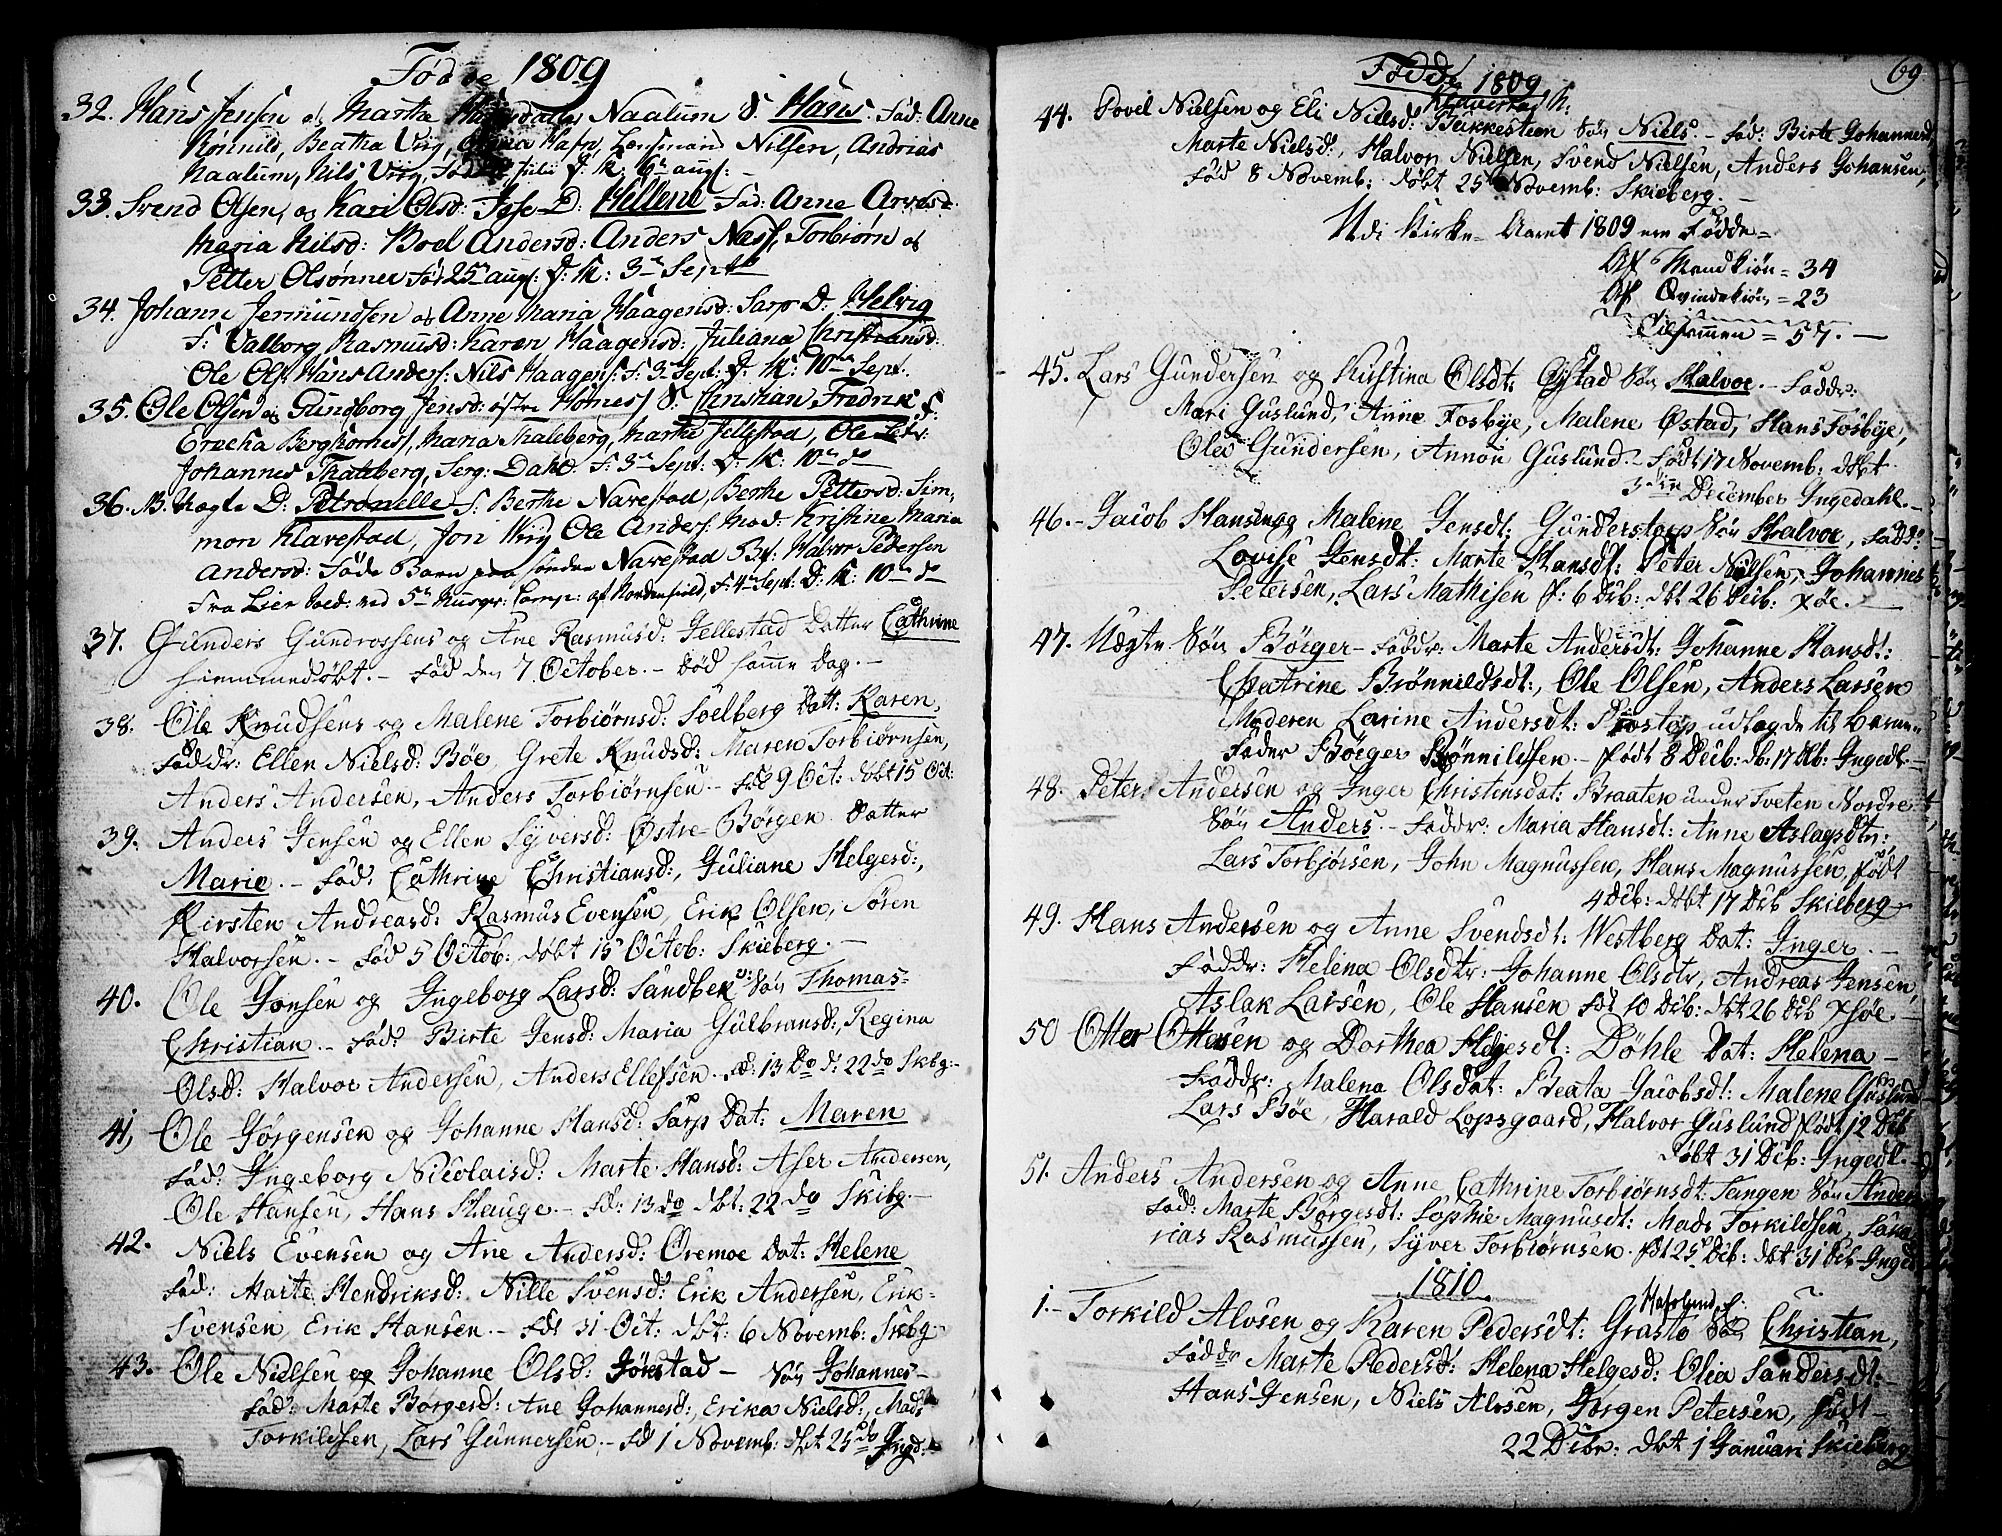 Fødde 1809
32. Hans Jensen og Marta Naalum S. Hans. Fad: Anne
Rønnild, Beatha Viig, Hafn, Lensmand Nilsen, Andrias
Naalum, Nils Viig, Julii D: K: 6te aug:
33. Svend Olsen, og Kari Olsd: D: Hellene Fad: Anne Arvesd:
Maria Nilsd: Boel Andersd: Anders Næss, Torbiørn og
Petter Olsønner Fød 25 aug: D: K: 3die Sept
34. Johann Jermundsen og Anne Maria Haagensd: Sarp D: Helvig
F: Valborg Rasmusd: Karen Haagensd: Juliana Christiansd:
Ole Ols: Hans Anders: Nils Haagens: F: 3 Sept: D: K: 10de Sept.
35. Ole Olsen og Gunborg Jensd: østre Hornes S. Christian Fredrik F:
Erecka Berg Hornes, Maria Thaleberg, Marthe Jellestad, Ole
Johannes Thaleberg, Serg: Dahl. F: 3 Sept: D: K: 10de do
36. U. Ægte D: Petronelle F: Berthe Navestad, Berthe Pettersd: Sim-
mon Klavestad, Jon Viig Ole Anders: Mod: Kristine Maria
Andersd: Føde Barn paa søndre Navestad B.f: Halvor Pedersen
Fra Lier Sold: ved 5te Musqr: Comp: af Nordenfield, F: 4 Sept: D: K: 10de do
37. Gunders Gundrossens og Ane Rasmusd: Jellestad Datter Cathrine
hiemmedøbt. - Fød den 7 October. - Død samme Dag. -
38. Ole Knudsens og Malene Torbiørnsd: Soelberg Datt: Karen,
Faddr: Ellen Nielsd: Bøe, Grete Knudsd: Maren Torbiørnsen,
Anders Andersen, Anders Torbiørnsen - Fød 9 Oct: døbt 15 Oct:
39. Anders Jensen og Ellen Syversd: Østre-Børgen Datter
Marie. - Fad: Cathrine Christiansd:, Juliane Helgesd:,
Kirsten Andreasd: Rasmus Evensen, Erik Olsen, Søren
Halvorsen. - Fød 5 Octob: døbt 15 Octob: Skieberg. -
40. Ole Jonsen og Ingeborg Larsd: Sandbek Søn Thomas-
Christian. - Fad: Birte Jensd: Maria Gulbransd:, Regina
Olsd: Halvor Andersen, Anders Ellefsen. Fd: 13 Do d: 22 do Skbg:-
41, Ole Jørgensen og Johanne Hansd: Sarp Dat: Maren
Fad: Ingeborg Nicolaisd: Marte Hansd: Aser Andersen,
Ole Hansen, Hans Hauge. - Fd: 13 do dbt: 22 do Skibg. -
42. Niels Evensen og Ane Andersd: Oremoe Dat: Helene
Fad: Marte Hendriksd: Nille Svensd: Erik Andersen, Erik-
Svensen, Erik Hansen. - Fdt 31 Oct: dbt: 6 Novemb: Skbg -
43. Ole Nielsen og Johanne Olsd: Jonstad - Søn Johannes -
Fad: Marte Børgesd: Ane Johannesd:, Erika Nielsd:, Mads
Torkildsen, Lars Gunnersen. - Fd 1 Novemb: dbt 25 do Ingd:
Fødde 1809
69
Klavestad N:
44. Povel Nielsen og Eli Nielsd: Bukkesteen Søn Niels. - Fad: Birte Johannesd,
Marte Nielsd:, Halvor Nielsen, Svend Nielsen, Anders Johansen,
Fød 8 Novemb: døbt 25 Novemb: Skieberg. -
Udi Kirke-Aaret 1809 ere Fødde =
Af Mandkiøn = 34
Af Qvindekiøn = 23
Tilsammen = 57. -
45. Lars Gundersen og Kirstina Olsdt: Østad Søn Halvor. - Faddr:
Mari Guslund, Anne Fosbye, Malene Østad, Hans Fosbye,
Oles Gundersen, Annon Guslund. - Født 17 Novemb: døbt
3die December Ingedahl. -
46. - Jacob Hansen og Malene Jensdt: Gunderstorp Søn Halvor, Fadd:
Lovise Jensdt: Marte Hansdt: Peter Nielsen, Johannes
Petersen, Lars Mathisen f: 6 Dcb: dbt 26 Dcb: -
47. Uægte Søn Børger - Faddr: Marte Andersdt: Johanne Hansdt:
Chatrine Brønnildsdt:, Ole Olsen, Anders Larsen
Moderen Larine Andersdt: udlagde til Barne-
Fader Børger Brønnildsen. - født 8 Dcb: db: 17 Db: Ingedl -
48. Peter Andersen og Inger Christensdat: Braaten under Tveten Nordre
Søn Anders. - Faddr: Maria Hansdt: Anne Aslagsdtr:
Lars Torbjørsen, John Magnussen, Hans Magnussen, født
4 Dcb: døbt 17 Dcb Skieberg -
49. Hans Andersen og Anne Svendsdt: Westberg Dat: Inger. -
Faddr: Helena Olsdtr: Johanne Olsdtr, Andreas Jensen,
Aslak Larsen, Ole Hansen Fdt 10 Dcb: dbt 26 Dcb -
50 Otter Ottesen og Dorthea Helgesdt: Døhle Dat: Helena -
Faddr: Malena Olsdat: Beata Jacobsdt: Malene Guslund
Lars Bøe, Harald Lopsgaard, Halvor Guslund født 12 Dcb
døbt 31 Dcb: Ingedl. -
51. Anders Andersen og Anne Cathrine Torbiørnsdt: Tangen Søn Anders
Fad: Marte Børgesdt: Sophie Magnusdt: Mads Torkildsen,
Rasmussen, Syver Torbiørnsen. fdt 25 Dcb: dbt 31 Dcb Inged
1810
Hafslund
1. - Torkild Alvsen og Karen Pedersdt: Grastø Søn Christian,
Faddr Marte Pedersd: Helena Helgesd: Olea Sandersdt: -
Hans Jensen, Niels Alvsen, Jørgen Petersen, født -
22 Dcbr: dbt 1 Januari Skieberg